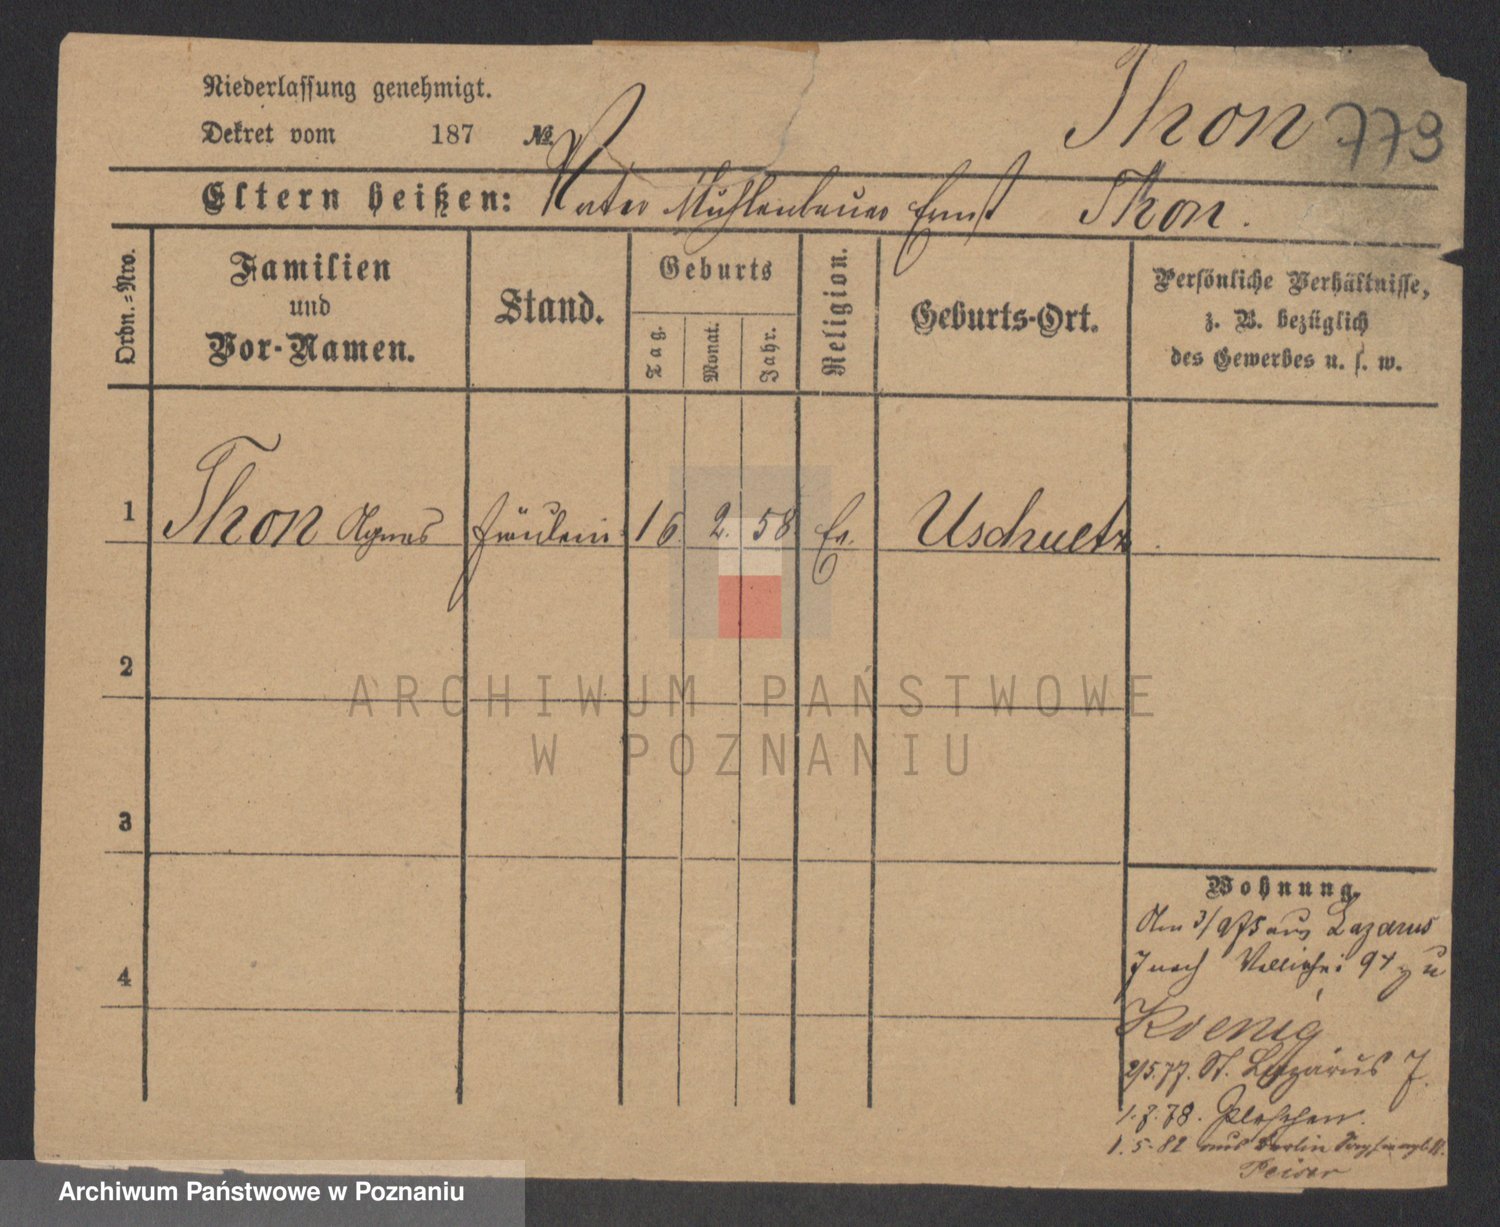 Niederlassung genehmigt.
Dekret vom 187 №
Thon 779
Eltern heißen: Vater Mühlenbauer Ernst Thon.
Ordn.=Nro.
Familien
und
Vor-Namen.
Stand.
Geburts
Tag.
Monat.
Jahr.
Religion.
Geburts-Ort.
Persönliche Verhältnisse,
z. B. bezüglich
des Gewerbes u. s. w.
1 Thon Agnes Fräulein 16. 2. 58 Ev. Uschuetz
2
ARCHIWUM PAŃSTWOWE
W POZNANIU
3
Wohnung.
Am 3/9 75 aus Lazarus
7 nach 94 zu
4
Koenig
2/5.77. St. Lazarus 7.
1.7.78. Pleschen.
1.5.82 aus Berlin
Archiwum Państwowe w Poznaniu